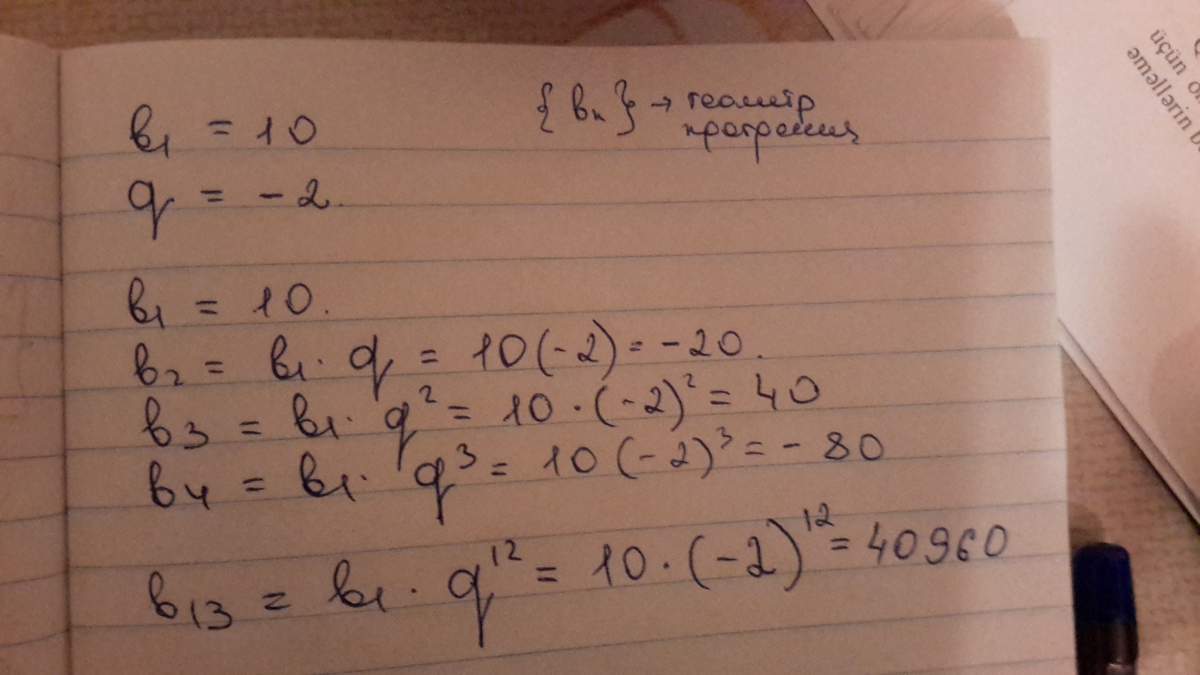 {bₙ} → геометр
прогрессия
b₁ = 10
q = -2.
b₁ = 10.
b₂ = b₁· q = 10(-2) = -20.
b₃ = b₁· q² = 10·(-2)² = 40
b₄ = b₁· q³ = 10(-2)³ = -80
b₁₃ = b₁· q¹² = 10·(-2)¹² = 40960
üçün
əməllərin